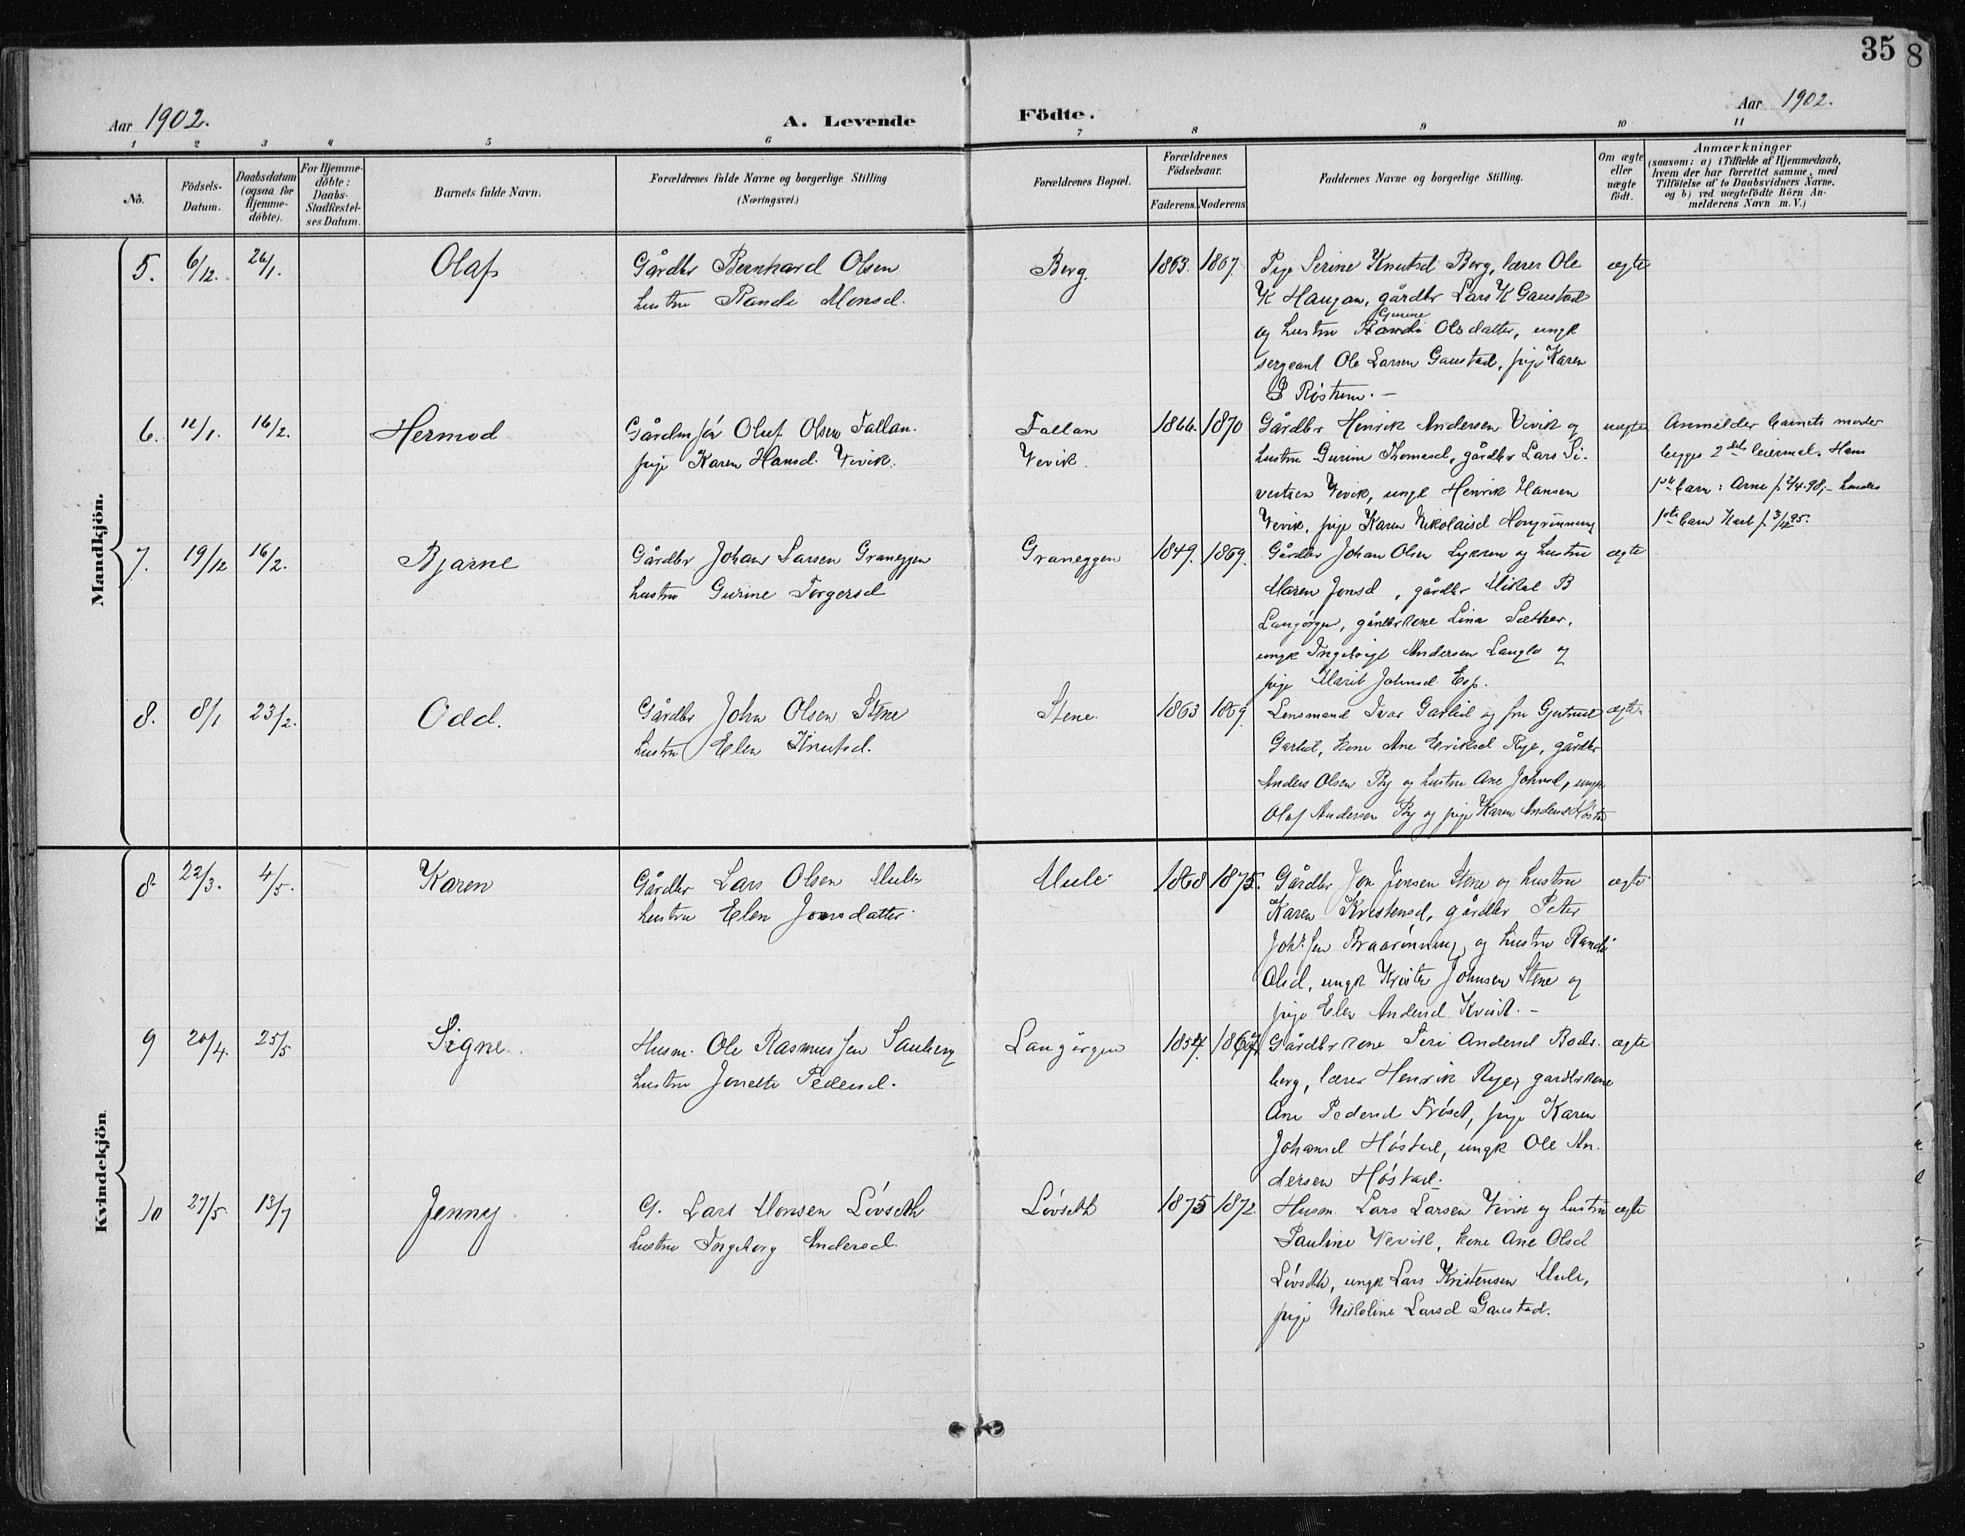 35
8
Aar 1902.
A. Levende
Födte.
Aar 1902.
1 2 3 4 5 6 7 8 9 10 11
No.
Födsels-
Datum.
Daabsdatum
(ogsaa for
Hjemme-
döbte).
For Hjemme-
döbte:
Daabs-
Stadfæstel-
ses Datum.
Barnets fulde Navn.
Forældrenes fulde Navne og borgerlige Stilling
(Næringsvei.)
Forældrenes Bopæl.
Forældrenes
Födselsaar.
Faderens. Moderens
Faddernes Navne og borgerlige Stilling.
Om ægte
eller
uægte
födt.
Anmærkninger
(saasom: a) i Tilfælde af Hjemmedaab,
hvem der har forrettet samme, med
Tilföielse af to Daabsvidners Navne,
og b) ved uægtefödte Börn An-
melderens Navn m. V.)
Mandkjön.
5. 6/12. 26/1. Olaf Gårdbr Bernhard Olsen
hustru Randi Monsd. Berg. 1863. 1867.
Pige Serine Knutsd Berg, lærer Ole
K Haugan, gårdbr Lars K Gaustad
og hustru Randi Gurine Olsdatter, ungk
sergeant Ole Larsen Gaustad, pige Karen
Røstum. –
ægte
6. 12/1. 16/2. Hermod Olaf Olsen Fallan.
pige Karen Hansd. Vevik. Fallan
Vevik. 1866. 1870
Gårdbr Henrik Andersen Vevik og
hustru Gurine Thomasd, gårdbr Lars Si-
vertsen Vevik, ungk Henrik Hansen
Vevik, pige Karen Nikolaisd
uægte
Anmelder barnets moder
begges 2det leiermal. Hans
1ste barn: Arne f 2/4.98; –
1ste barn f 3/12 95.
7. 19/12 16/2. Bjarne Gårdbr Johan Larsen Graneggen
hustru Gurine Torgersd Graneggen 1849. 1869.
Gårdbr Johan Olsen og hustru
Maren Jonsd, gårdbr Mikal B
Langørgen, gårdbrkone Lina Sæther,
ungk Andersen Langlo og
pige Marit Johnsd Esp.
ægte
8. 8/1 23/2. Odd. Gårdbr John Olsen Stene
hustru Elen Knutsd. Stene. 1863 1869.
Lensmand Ivar Garlid og fru Gjertrud
Garlid, kone Ane Eriksd Rye, gårdbr
Anders Olsen By og hustru Ane Johnsd, ungk
Olaf Andersen By og pige Karen Andersd
ægte
Kvindekjön
8. 22/3. 4/5. Karen Gårdbr Lars Olsen Mule
hustru Elen Jonsdatter. Mule 1868 1875.
Gårdbr Jon Jonsen Stene og hustru
Karen Kristensd, gårdbr Peter
Braarønning og hustru Randi
Olsd, ungk Krister Johnsen Stene og
pige Elen Andersd Kvist. –
ægte
9 20/4. 25/5 Signe. Husm. Ole Rasmussen Sauberg
hustru Jonette Pedersd. Langørgen 1854. 1867
Gårdbrkone Seri Andersd Bods-
berg, lærer Henrik Rye, gardbrkone
Ane Pedersd Frøset, pige Karen
Johansd Høstad, ungk Ole An-
dersen Høstad.
ægte
10 27/5 13/7 Jenny G. Lars Monsen Løvseth
hustru Ingeborg Andersd. Løvseth 1875 1872.
Husm. Lars Larsen Vevik og hustru
Pauline Vevik, kone Ane Olsd
Løvseth, ungk Lars Kristensen Mule,
pige Nikoline Larsd Gaustad.
ægte